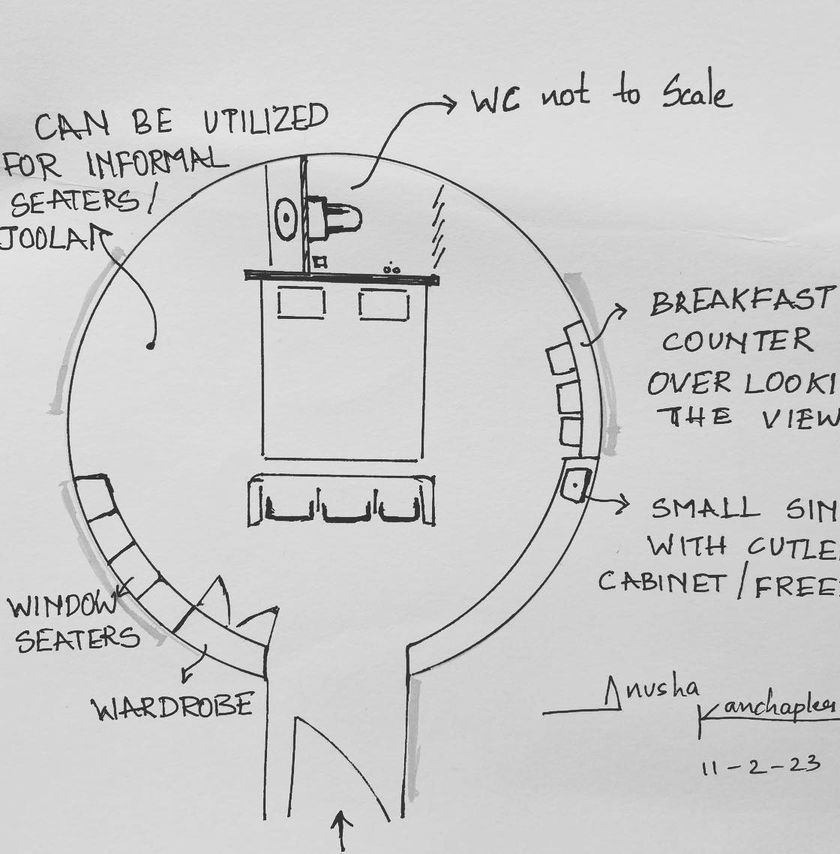 WC not to Scale
CAN BE UTILIZED
FOR INFORMAL
SEATERS/
JOOLA
BREAKFAST
COUNTER
OVER LOOKI
THE VIEW
SMALL SIN
WITH CUTLE
CABINET/FREE
WINDOW
SEATERS
WARDROBE
Anusha
Kanchapler
11-2-23